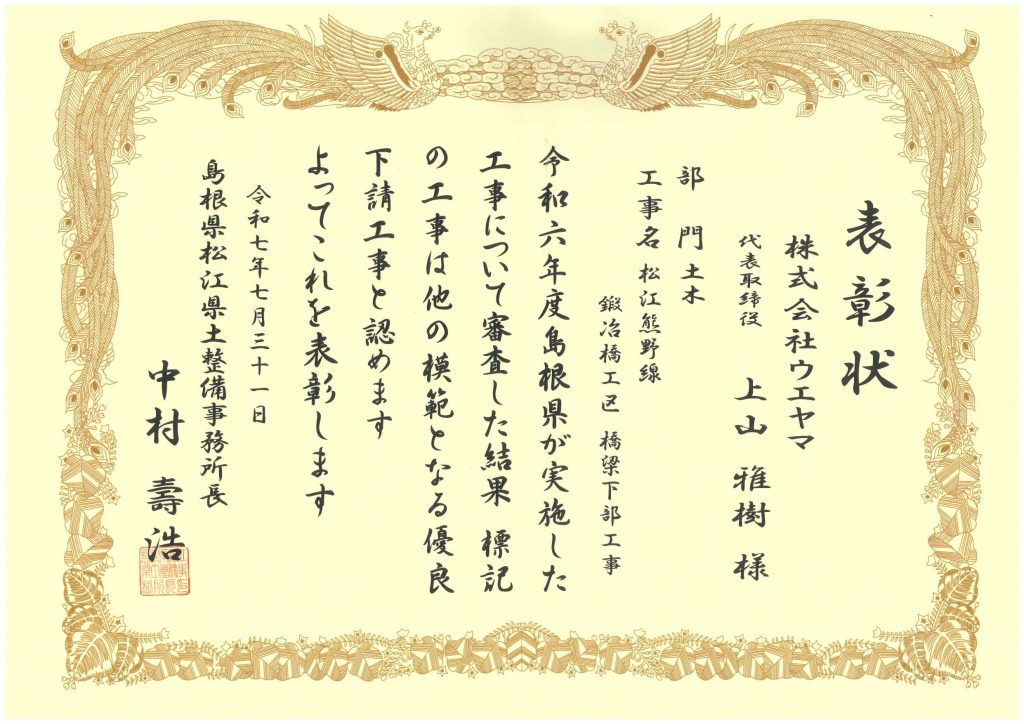 表彰状
株式会社ウエヤマ
代表取締役 上山 雅樹 様
部門 土木
工事名 松江熊野線
鍛冶橋工区 橋梁下部工事
令和六年度島根県が実施した
工事について審査した結果 標記
の工事は他の模範となる優良
下請工事と認めます
よってこれを表彰します
令和七年七月三十一日
島根県松江県土整備事務所長
中村 壽浩